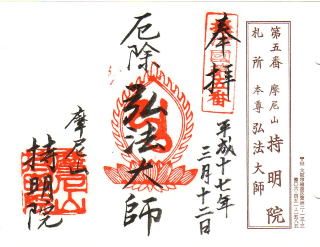 第五番 摩尼山 持明院
札所 本尊 弘法大師
奉拝
平成十七年
三月十二日
厄除 弘法大師
摩尼山
持明院